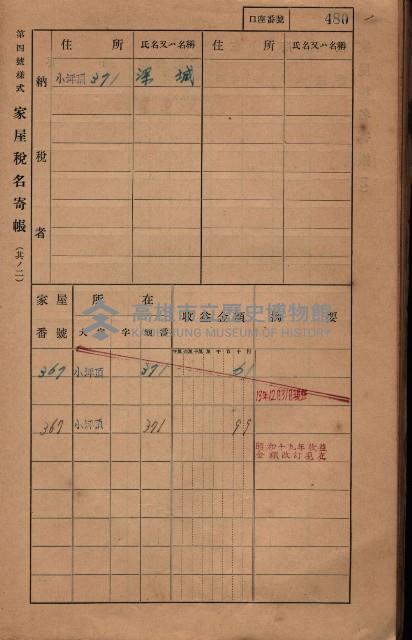 口座番號 480
第四號樣式 家屋稅名寄帳 (其ノ二)
納稅者
住所 氏名又ハ名稱 住所 氏名又ハ名稱
小坪頂 371 深城
家屋番號 所在 收益金額 摘要
大字 字 地番
高雄市立歷史博物館
KAOHSIUNG MUSEUM OF HISTORY
367 小坪頂 371 61
367 小坪頂 371 99
昭和十九年收益
金額改訂